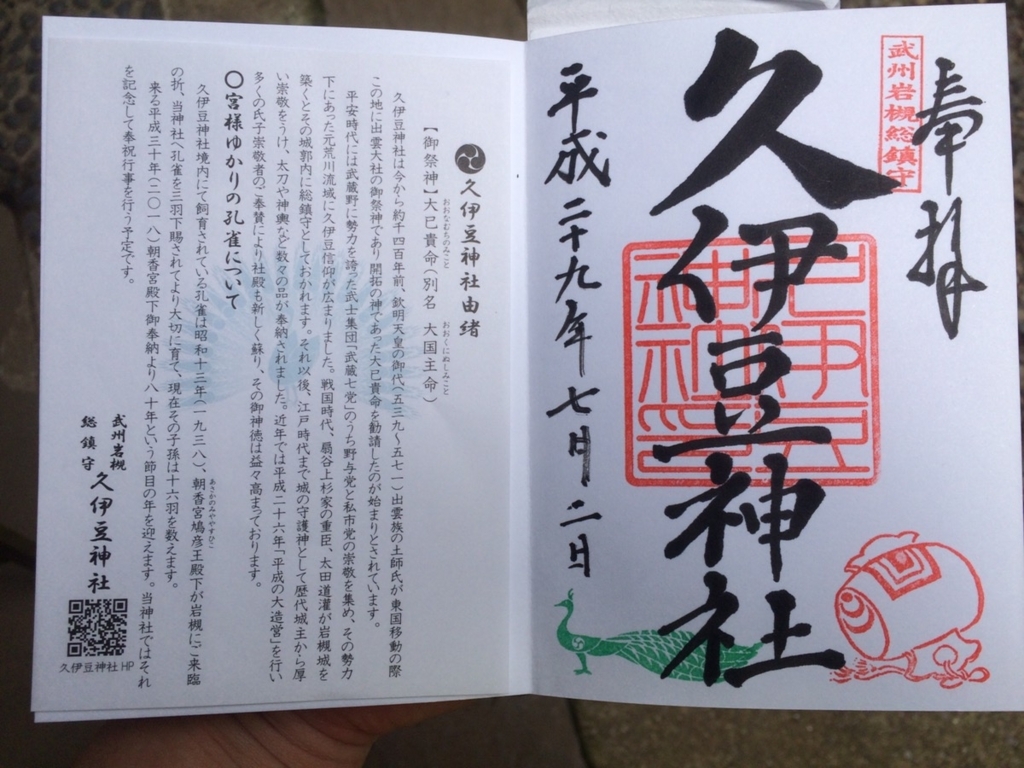 奉拝
武州岩槻総鎮守
久伊豆神社
平成二十九年七月二日
久伊豆神社由緒
【御祭神】大己貴命(別名 大国主命)
おおなむちのみこと
おおくにぬしみこと
久伊豆神社は今から約千四百年前、欽明天皇の御代(五三九〜五七一)出雲族の土師氏が東国移動の際
この地に出雲大社の御祭神であり開拓の神であった大己貴命を勧請したのが始まりとされています。
平安時代には武蔵野に勢力を誇った武士集団「武蔵七党」のうち野与党と私市党の崇敬を集め、その勢力
下にあった元荒川流域に久伊豆信仰が広まりました。戦国時代、扇谷上杉家の重臣、太田道灌が岩槻城を
築くとその城郭内に総鎮守としておかれます。それ以後、江戸時代まで城の守護神として歴代城主から厚
い崇敬をうけ、太刀や神輿など数々の品が奉納されました。近年では平成二十六年「平成の大造営」を行い
多くの氏子崇敬者のご奉賛により社殿も新しく蘇り、その御神徳は益々高まっております。
〇宮様ゆかりの孔雀について
久伊豆神社境内にて飼育されている孔雀は昭和十三年(一九三八)、朝香宮鳩彦王殿下が岩槻にご来臨
あさかのみややすひこ
の折、当神社へ孔雀を三羽下賜されてより大切に育て、現在その子孫は十六羽を数えます。
来る平成三十年(二〇一八)朝香宮殿下御奉納より八十年という節目の年を迎えます。当神社ではそれ
を記念して奉祝行事を行う予定です。
武州岩槻
総鎮守
久伊豆神社
久伊豆神社HP